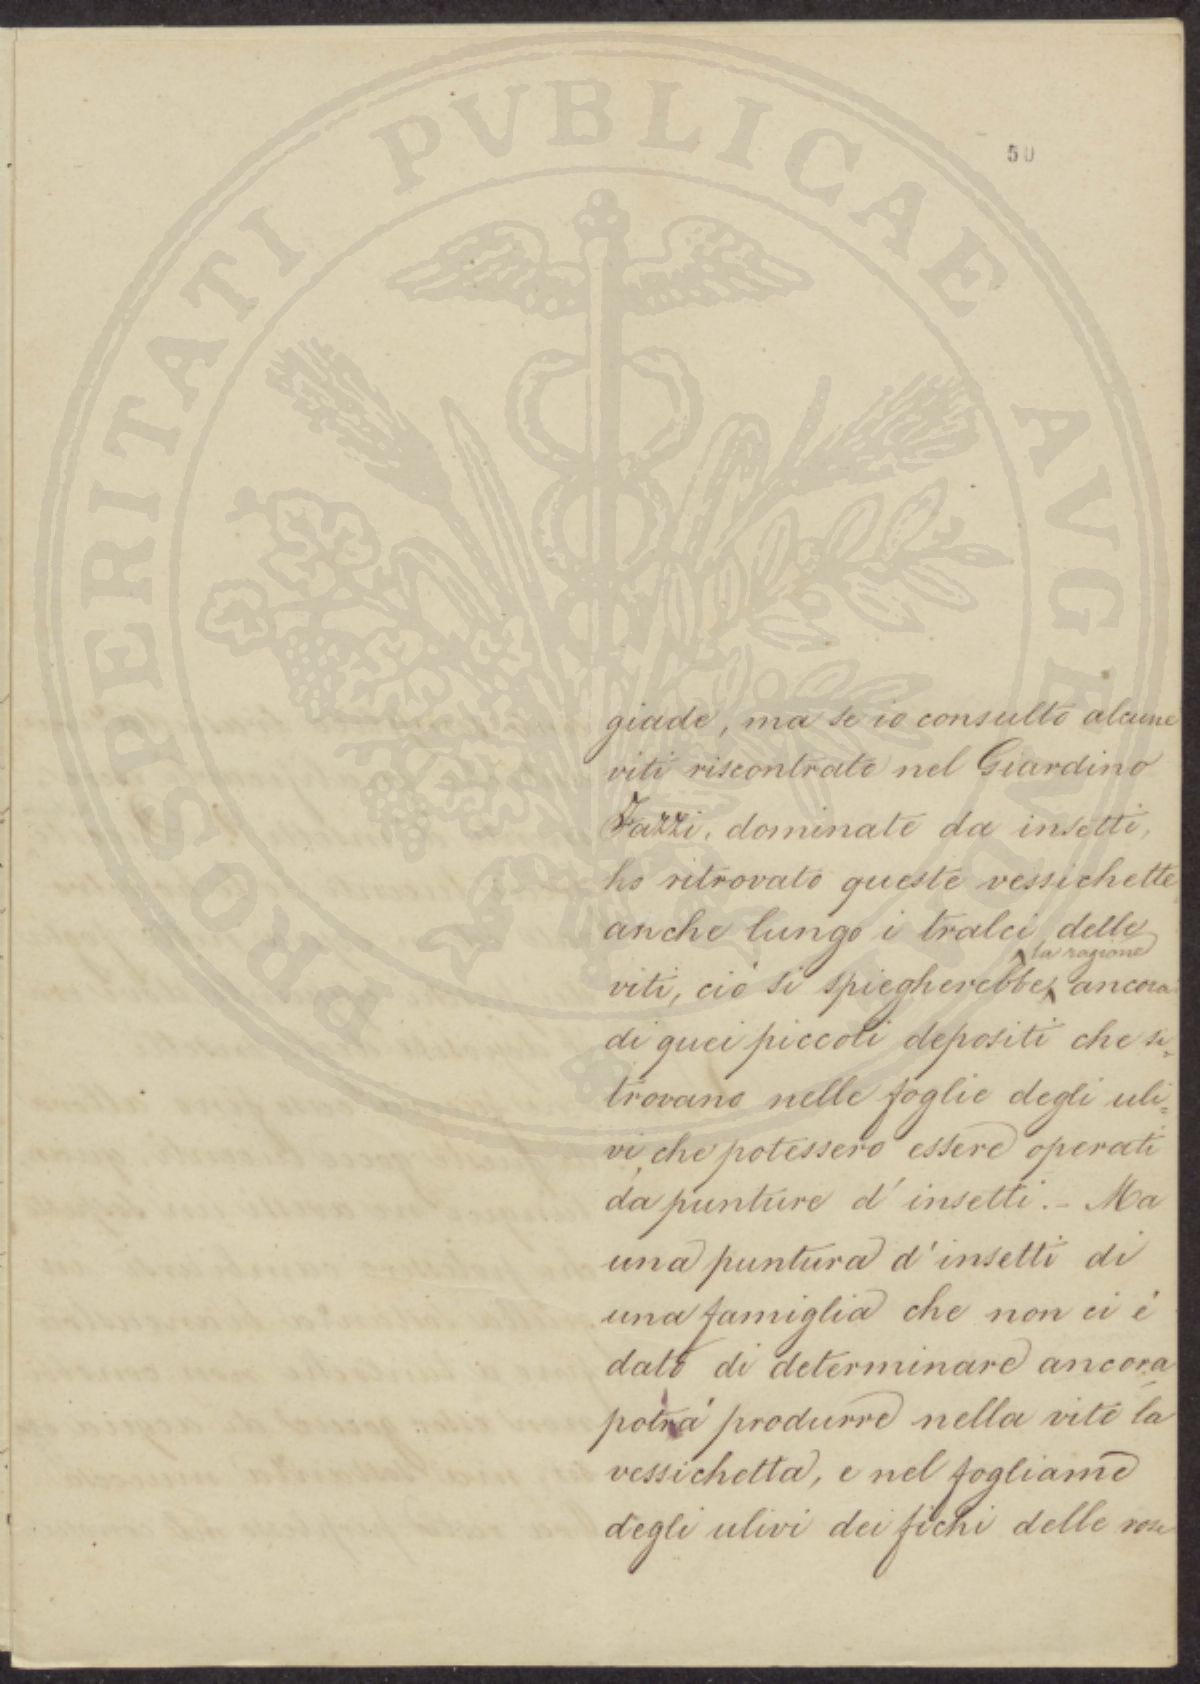 PROSPERITATI PVBLICAE AVGENDAE
50
giade, ma se io consulto alcune
viti riscontrate nel Giardino
Fazzi, dominate da insetti,
ho ritrovato queste vessichette
anche lungo i tralci delle
la ragione
viti, ciò si spiegherebbe ancora
di quei piccoli depositi che si
trovano nelle foglie degli uli=
vi, che potessero essere operati
da punture d' insetti. - Ma
una puntura d' insetti di
una famiglia che non ci è
dato di determinare ancora
potrà produrre nella vite la
vessichetta, e nel fogliame
degli ulivi dei fichi delle rose